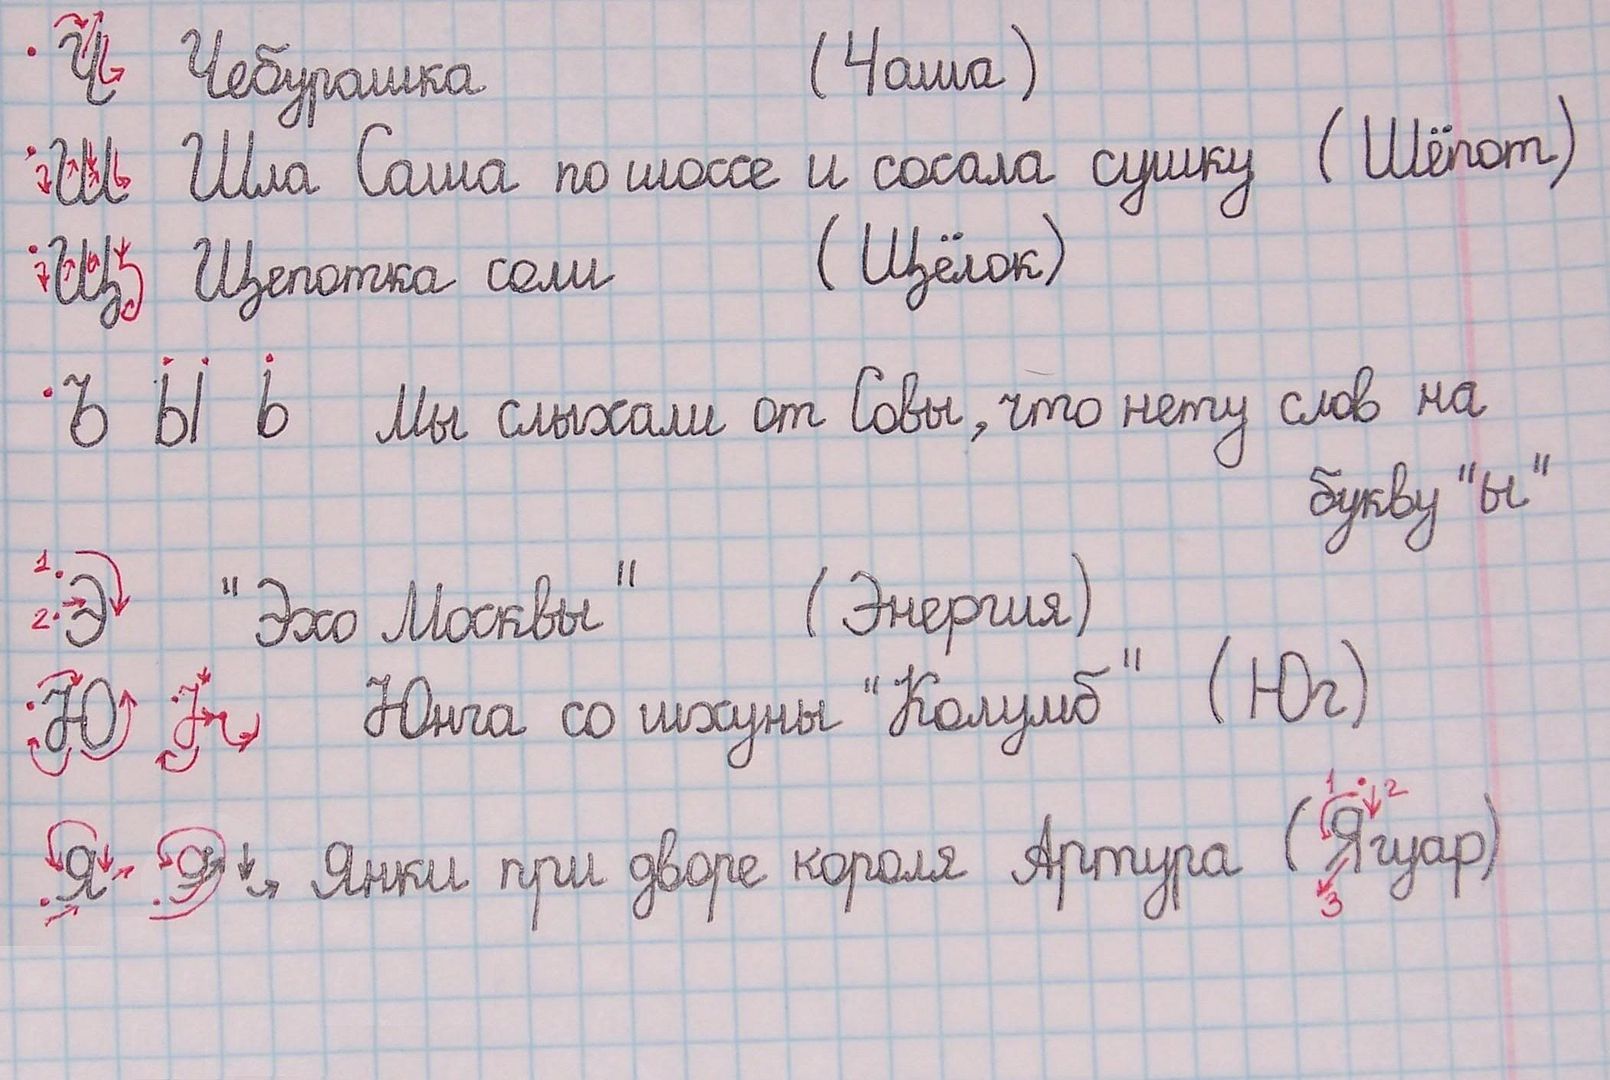 Ч Чебурашка (Чаша)
Ш Шла Саша по шоссе и сосала сушку (Шёпот)
Щ Щепотка соли (Щёлок)
Ъ Ы Ь Мы слыхали от Совы, что нету слов на
букву "ы"
1. 2. Э "Эхо Москвы" (Энергия)
Ю Ю Юнга со шхуны "Колумб" (Юг)
Я Я Янки при дворе короля Артура (Ягуар) 1 2 3